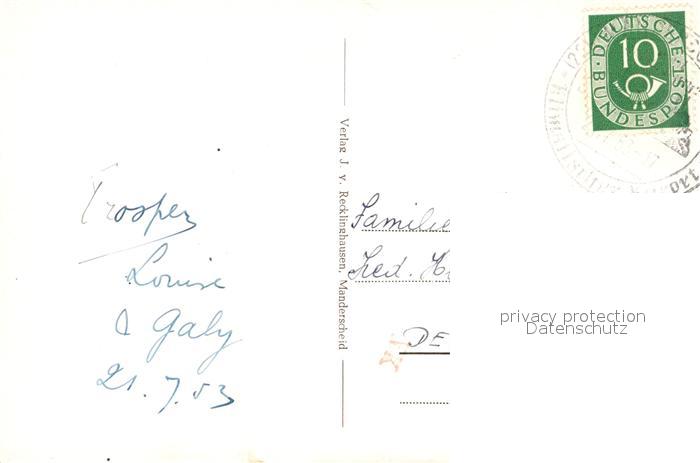 Prosper
Louise
& Gaby
21.7.53
Verlag J. v. Recklinghausen, Manderscheid
DEUTSCHE
10
BUNDESPOST
Familie
Fred. H
DE
privacy protection
Datenschutz